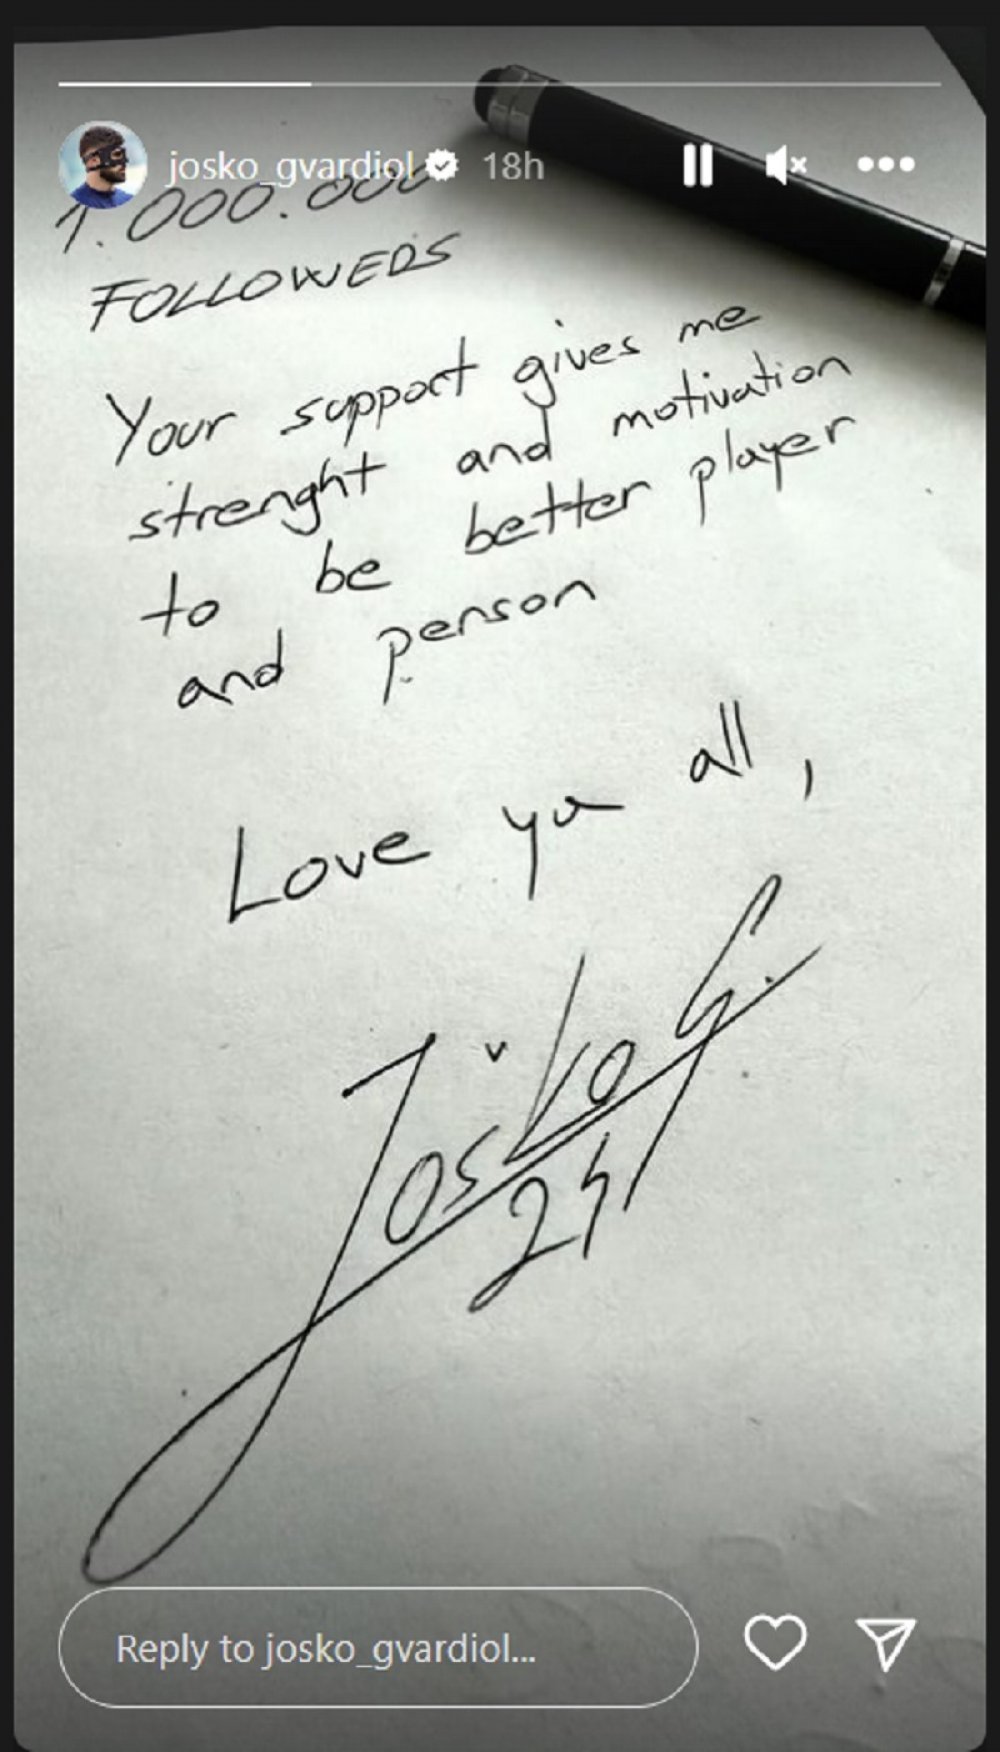 josko_gvardiol 18h
1.000.000
FOLLOWERS
Your support gives me
strenght and motivation
to be better player
and person
Love you all,
Joško G.
24
Reply to josko_gvardiol...